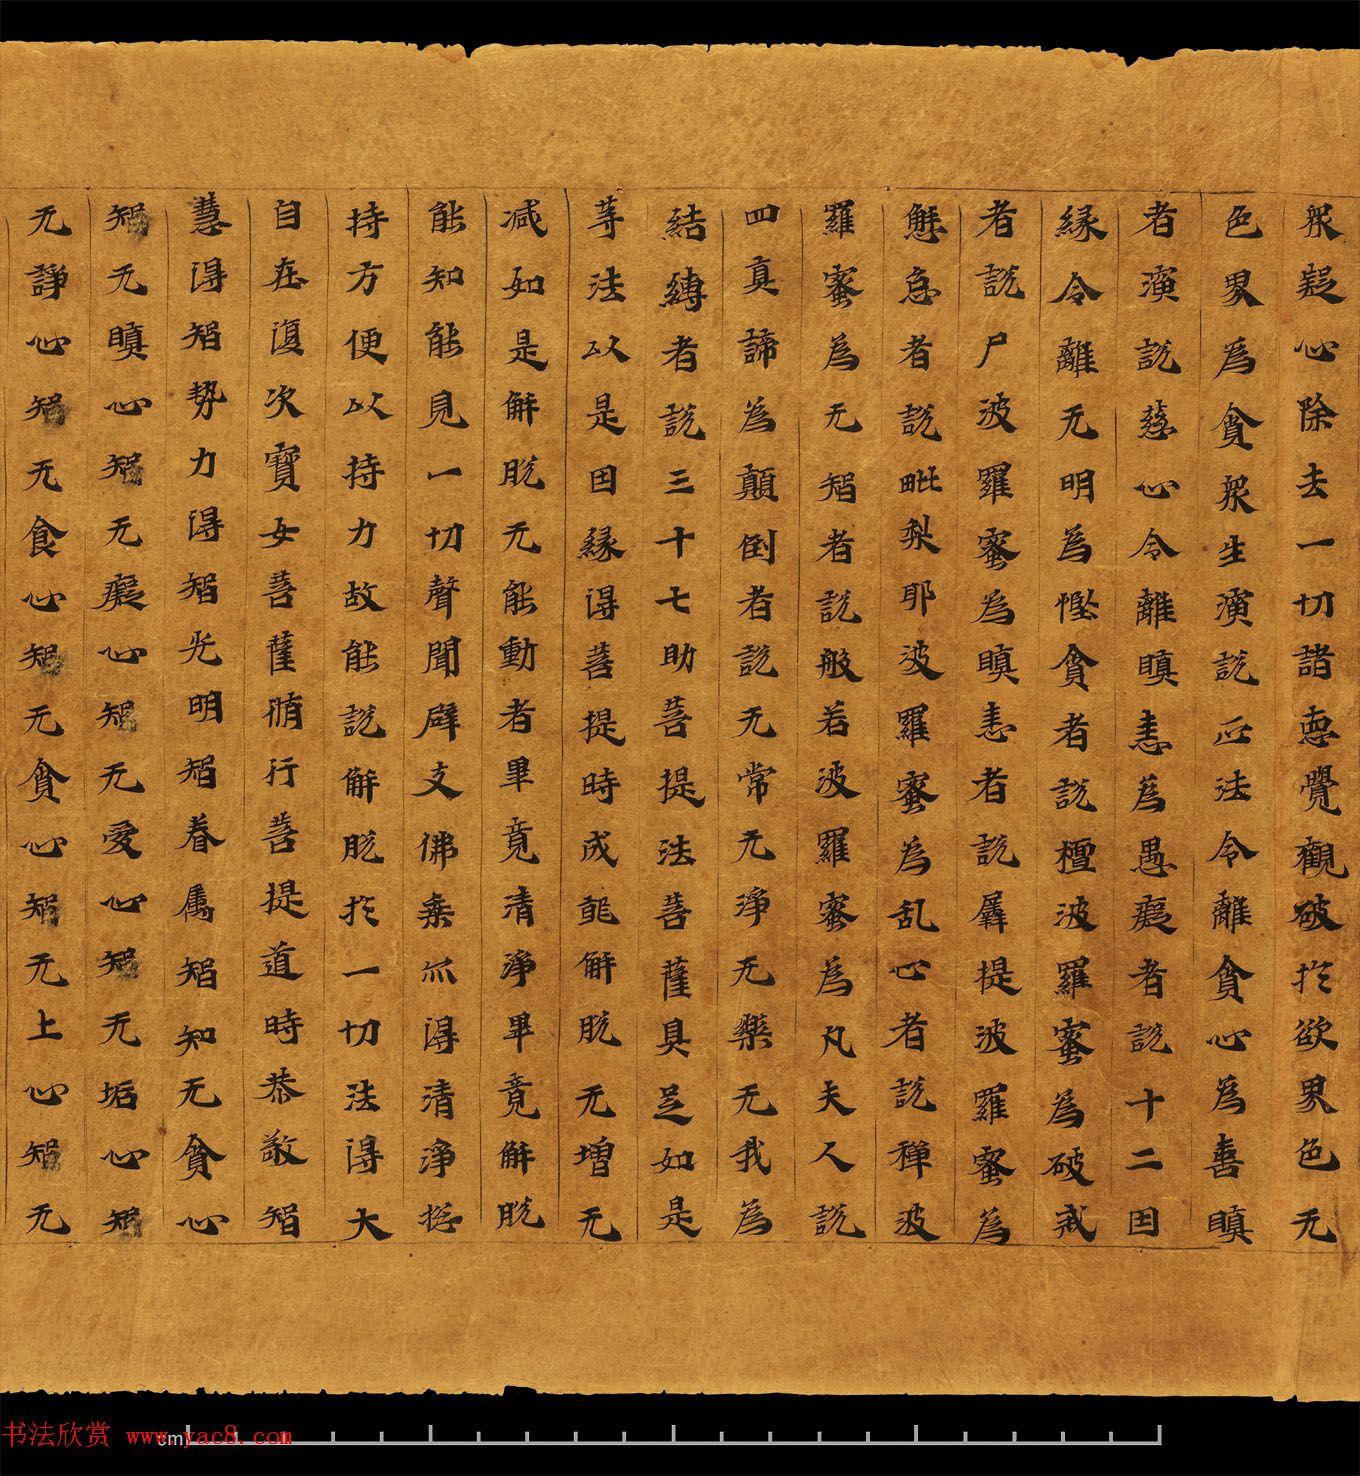 眾疑心除去一切諸惡覺觀破於欲界色无
色界為貪眾生演說正法令離貪心為喜瞋
者演說慈心令離瞋恚為愚癡者說十二因
緣令離无明為慳貪者說檀波羅蜜為破戒
者說尸波羅蜜為瞋恚者說羼提波羅蜜為
懈怠者說毗梨耶波羅蜜為乱心者說禪波
羅蜜為无智者說般若波羅蜜為凡夫人說
四真諦為顛倒者說无常无淨无樂无我為
結縛者說三十七助菩提法菩薩具足如是
等法以是因緣得菩提時成就解脫无增无
減如是解脫无能動者畢竟清淨畢竟解脫
能知能見一切聲聞辟支佛乘亦得清淨捴
持方便以持力故能說解脫於一切法得大
自在復次寶女菩薩脩行菩提道時恭敬智
慧得智勢力得智光明智眷属智知无貪心
智无瞋心智无癡心智无愛心智无垢心智
无諍心智无食心智无貪心智无上心智无
书法欣赏 www.yac8.com
cm